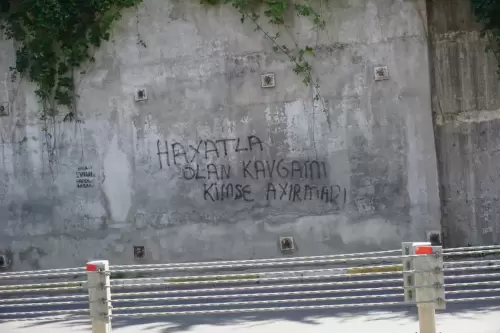 HAYATLA
OLAN KAVGAMI
KIMSE AYIRMADI